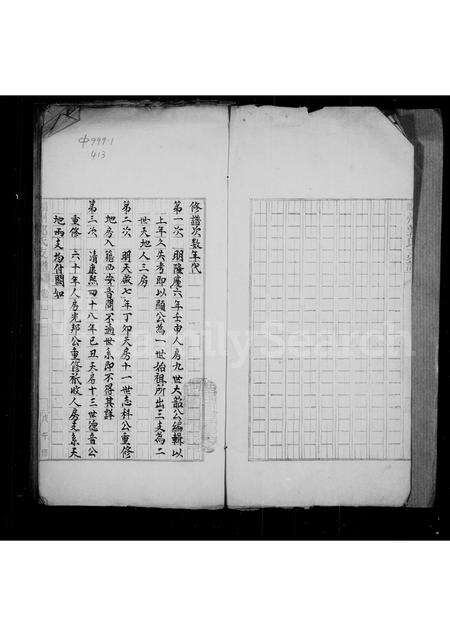 中999.1
413
修譜次數年代
第一次 明隆慶六年壬申人房九世大猷公編輯以
上年久失考即以顯公為一世始祖所出三支為二
世天地人三房
第二次 明天啟七年丁卯天房十一世志科公重修
地房入籍西安音問不通世系即不得其詳
第三次 清康熙四十八年己丑天房十三世德音公
重修 六十年人房光邦公重修祇收人房支系天
地兩支均付闕如
FamilySearch